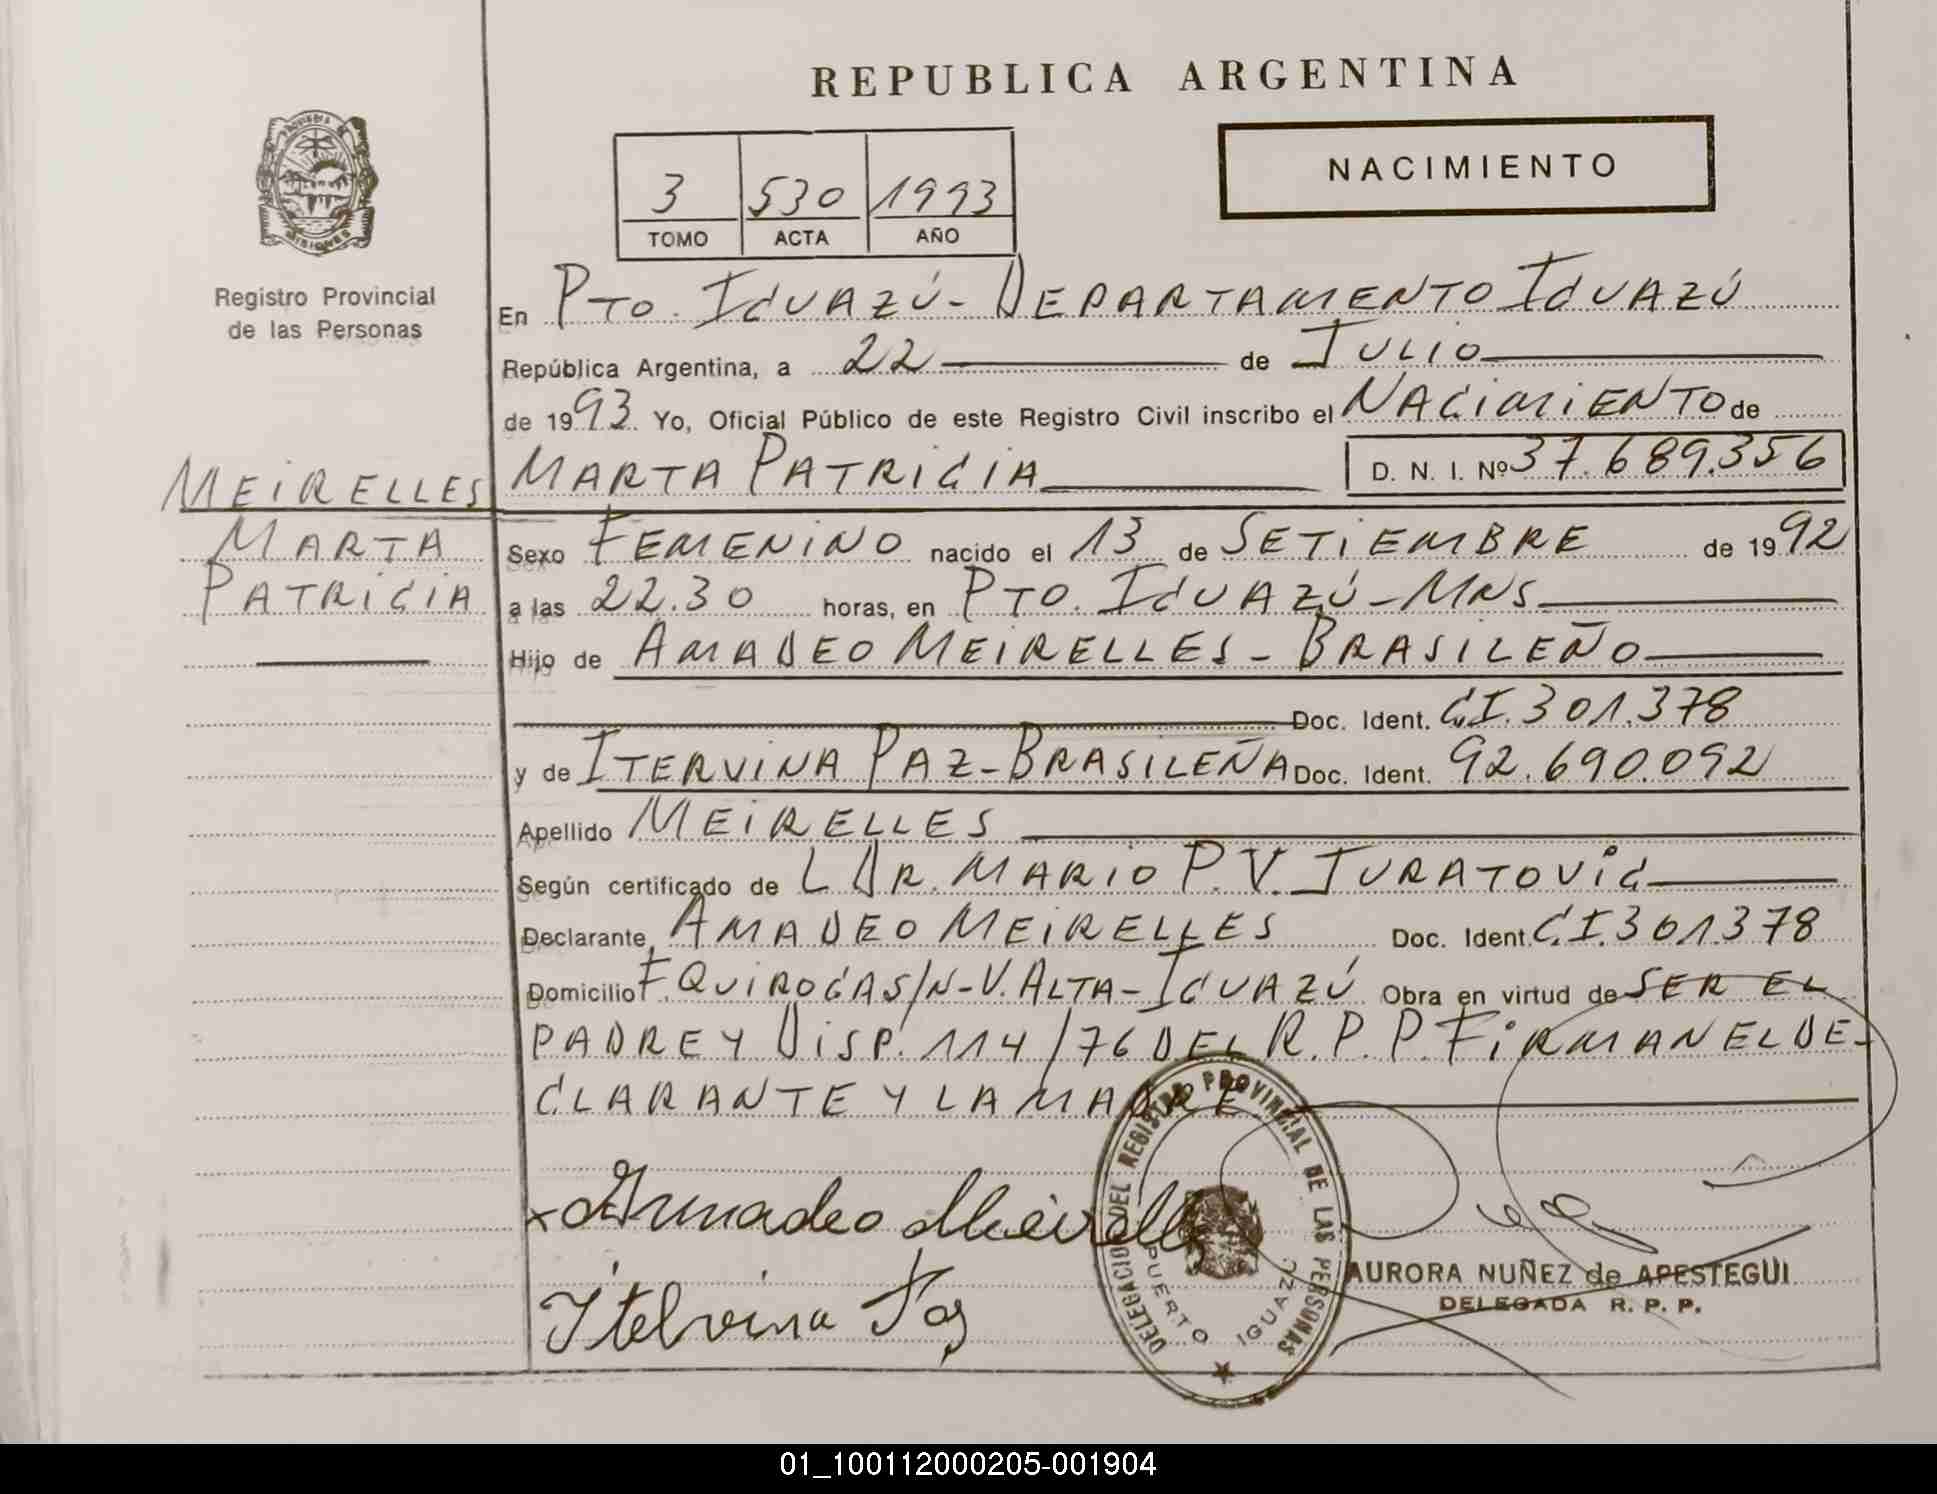 REPUBLICA ARGENTINA
NACIMIENTO
3 530 1993
TOMO ACTA AÑO
PROVINCIA DE
MISIONES
Registro Provincial
de las Personas
En PTO. IGUAZÚ - DEPARTAMENTO IGUAZÚ
República Argentina, a 22 de JULIO
de 1993. Yo, Oficial Público de este Registro Civil inscribo el NACIMIENTO de
MEIRELLES MARTA PATRICIA D. N. I. Nº 37.689.356
MARTA
PATRICIA
Sexo FEMENINO nacido el 13 de SETIEMBRE de 1992
a las 22.30 horas, en PTO. IGUAZÚ - MNS
Hijo de AMADEO MEIRELLES - BRASILEÑO
Doc. Ident. C.I. 301.378
y de ITERVINA PAZ - BRASILEÑA Doc. Ident. 92.690.092
Apellido MEIRELLES
Según certificado de L DR. MARIO P. V. JURATOVIC
Declarante, AMADEO MEIRELLES Doc. Ident. C.I. 301.378
Domicilio F. QUIROGA S/N - V. ALTA - IGUAZÚ Obra en virtud de SER EL
PADRE Y DISP. 114/76 DEL R. P. P. FIRMAN EL DE-
CLARANTE Y LA MADRE
x Amadeo Meirelles
Itelvina Paz
DELEGACION DEL REGISTRO PROVINCIAL DE LAS PERSONAS
PUERTO IGUAZU
AURORA NUÑEZ de APESTEGUI
DELEGADA R. P. P.
01_100112000205-001904